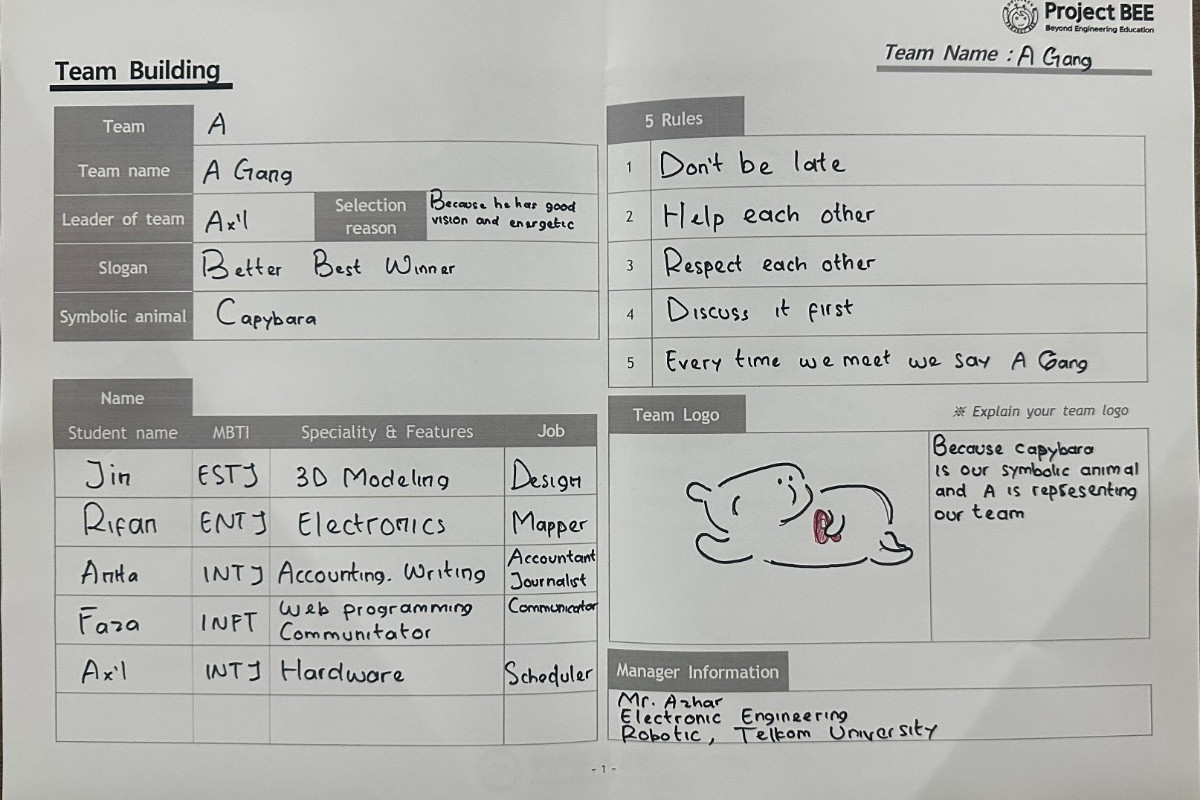 Project BEE
Beyond Engineering Education
Team Building
Team Name : A Gang
Team A
Team name A Gang
Leader of team Ax'l Selection reason Because he has good
vision and energetic
Slogan Better Best Winner
Symbolic animal Capybara
5 Rules
1 Don't be late
2 Help each other
3 Respect each other
4 Discuss it first
5 Every time we meet we say A Gang
Name
Student name MBTI Speciality & Features Job
Jin ESTJ 3D Modeling Design
Rifan ENTJ Electronics Mapper
Anita INTJ Accounting. Writing Accountant
Journalist
Faza INFT Web programming Communicator
Communitator
Ax'l INTJ Hardware Scheduler
Team Logo
※ Explain your team logo
Because capybara
is our symbolic animal
and A is representing
our team
A
Manager Information
Mr. Azhar
Electronic Engineering
Robotic, Telkom University
- 1 -